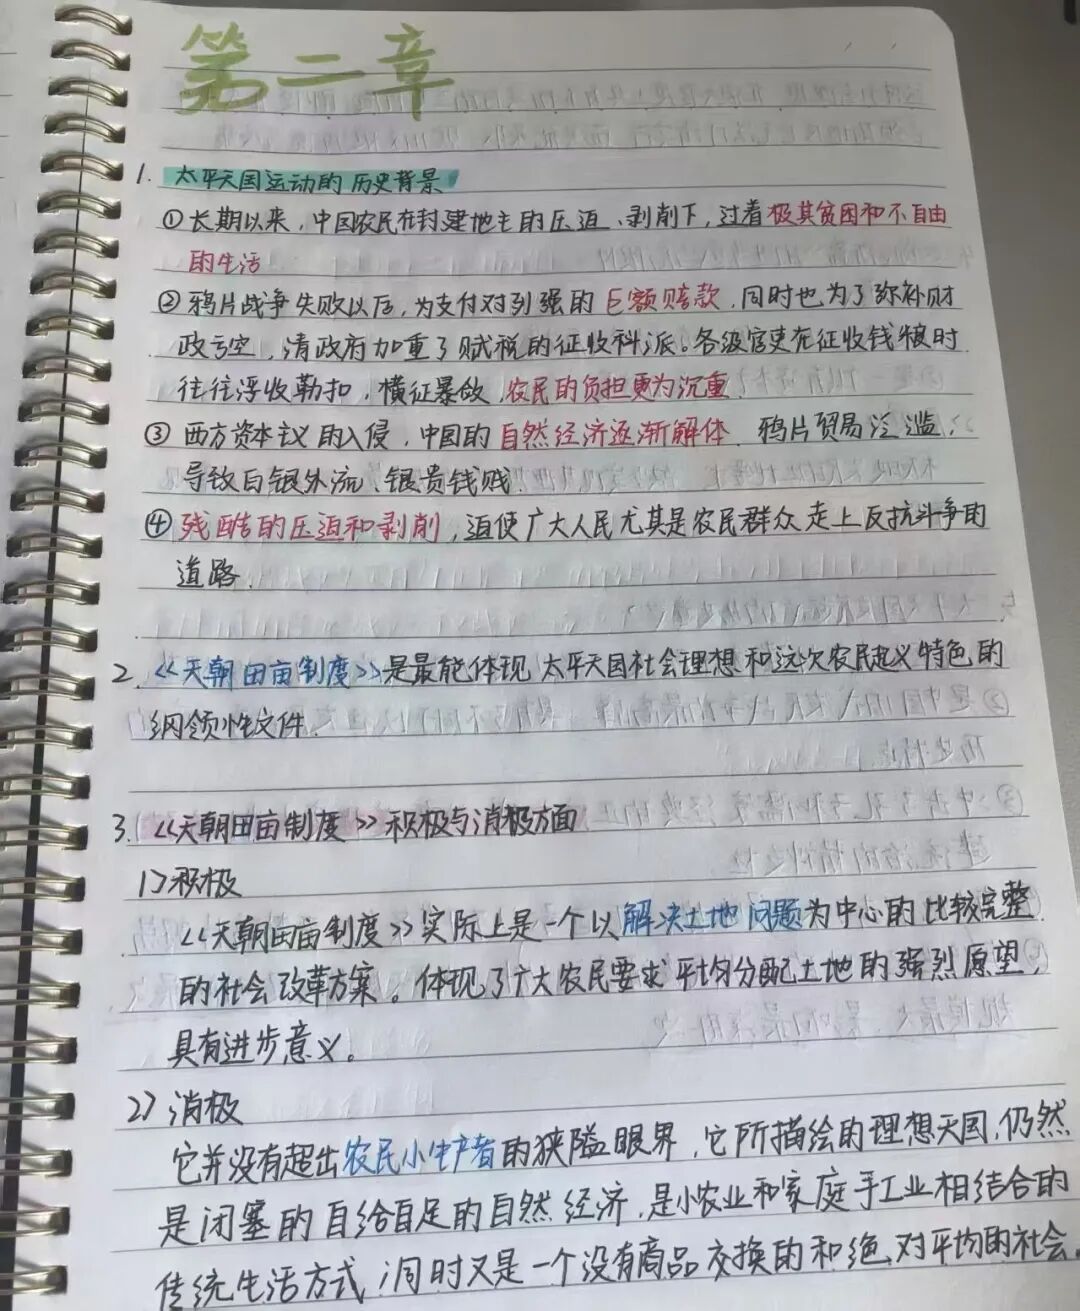 第二章
1. 太平天国运动的历史背景
①长期以来,中国农民在封建地主的压迫、剥削下,过着极其贫困和不自由
的生活
②鸦片战争失败以后,为支付对列强的巨额赔款,同时也为了弥补财
政亏空,清政府加重了赋税的征收科派。各级官吏在征收钱粮时
往往浮收勒扣,横征暴敛,农民的负担更为沉重
③西方资本主义的入侵,中国的自然经济逐渐解体,鸦片贸易泛滥,
导致白银外流、银贵钱贱.
④残酷的压迫和剥削,迫使广大人民尤其是农民群众走上反抗斗争的
道路.
2.《天朝田亩制度》是最能体现太平天国社会理想和这次农民起义特色的
纲领性文件.
3.《天朝田亩制度》积极与消极方面
1>积极
《天朝田亩制度》实际上是一个以解决土地问题为中心的比较完整
的社会改革方案。体现了广大农民要求平均分配土地的强烈愿望,
具有进步意义。
2>消极
它并没有超出农民小生产者的狭隘眼界,它所描绘的理想天国,仍然
是闭塞的自给自足的自然经济,是小农业和家庭手工业相结合的
传统生活方式,同时又是一个没有商品交换的和绝对平均的社会.